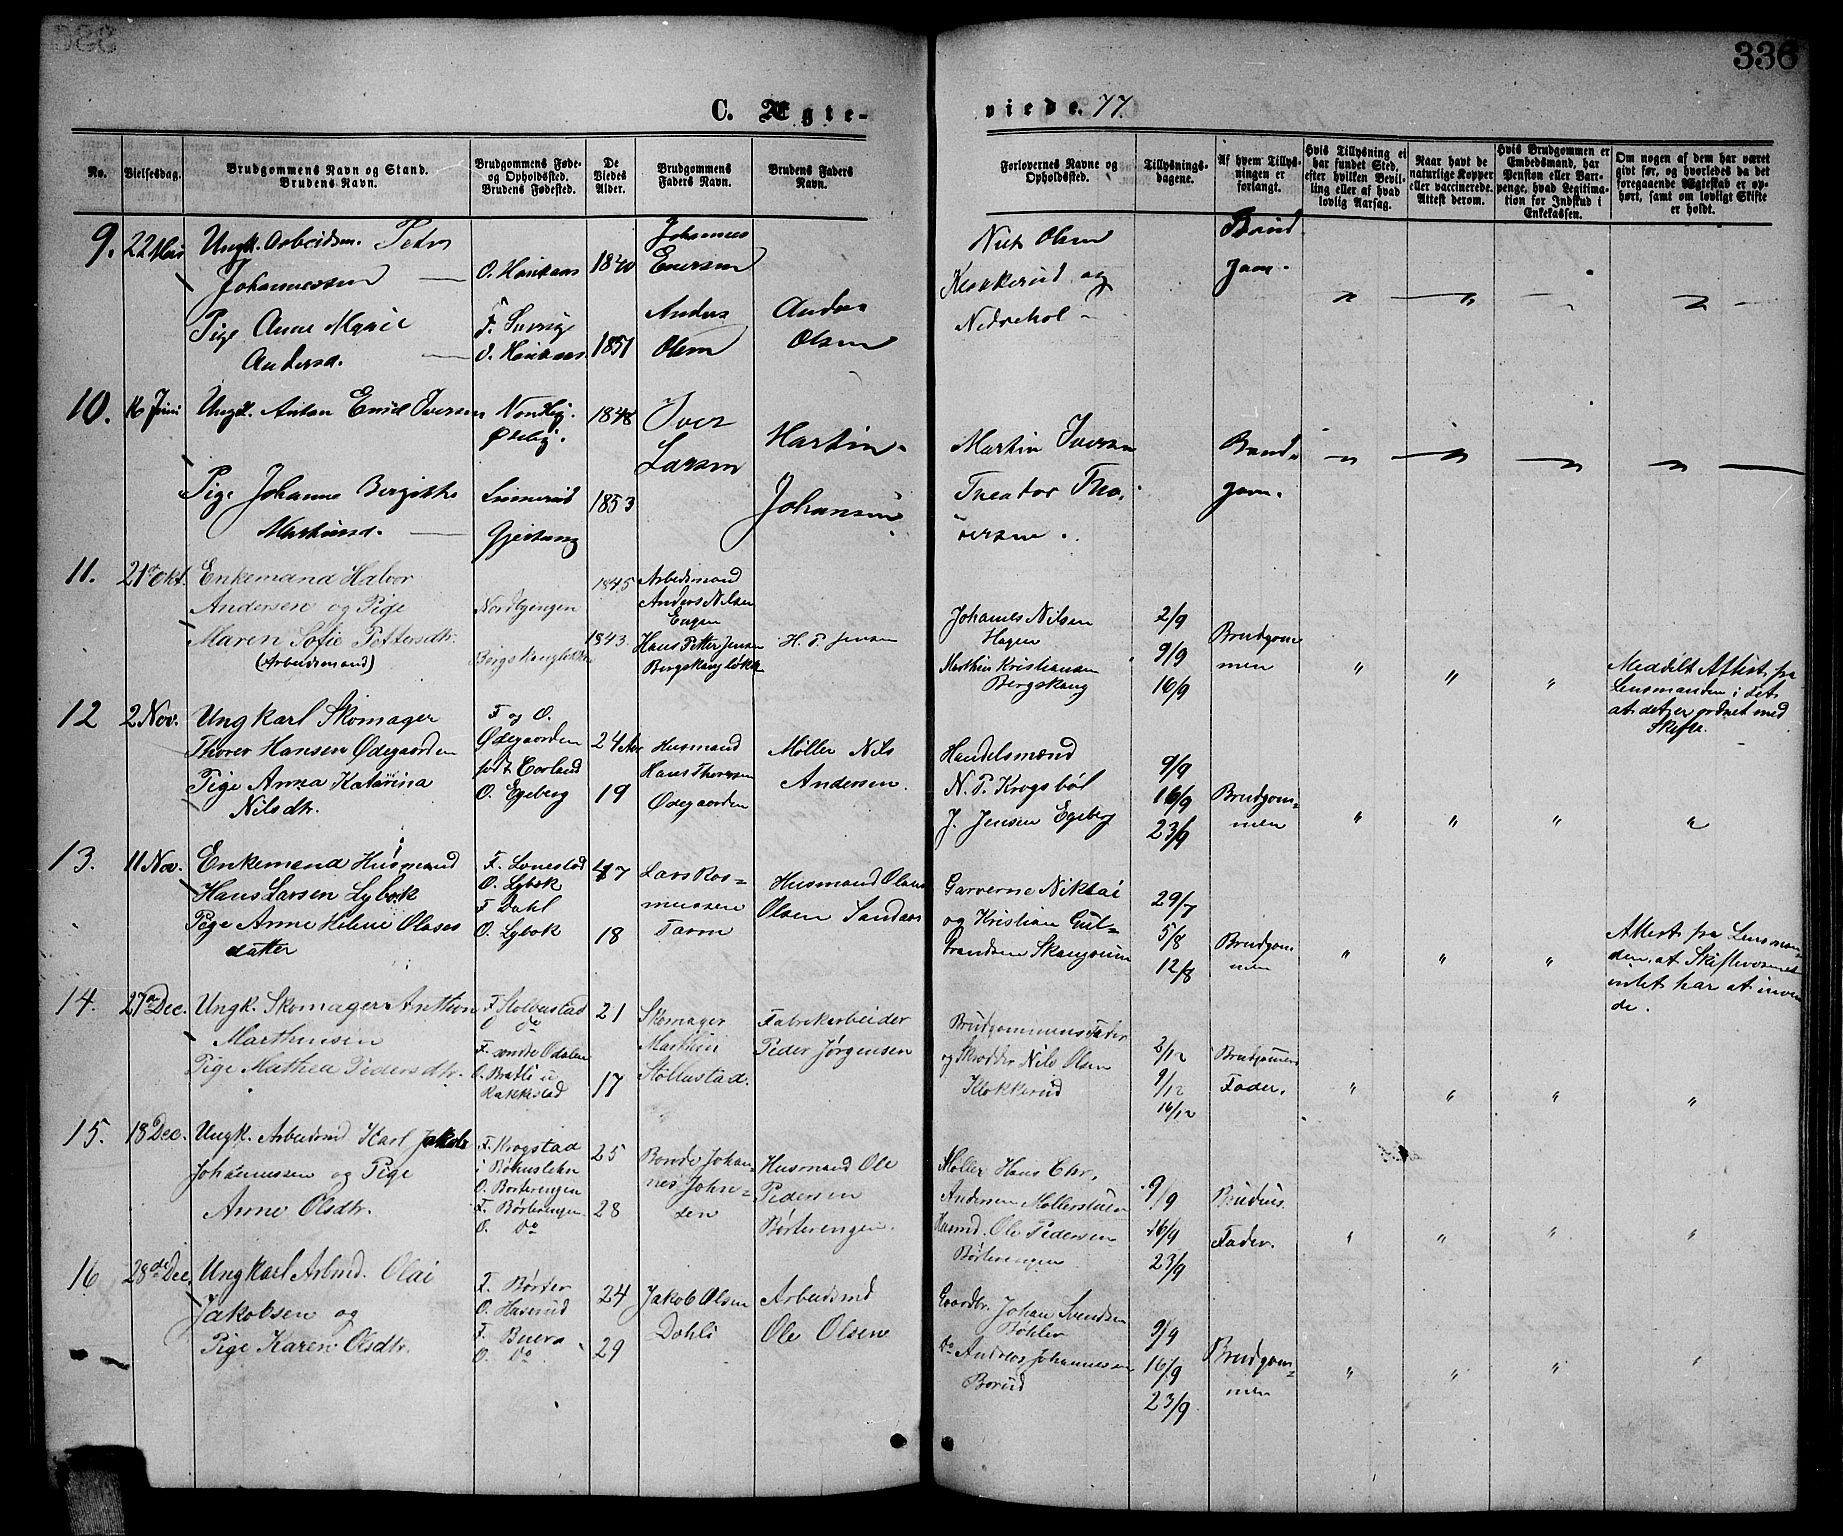 336
C. Ægte-
viede. 77.
No.
Vielsesdag.
Brudgommens Navn og Stand.
Brudens Navn.
Brudgommens Føde-
og Opholdssted.
Brudens Fødested.
De
Viedes
Alder.
Brudgommens
Faders Navn.
Brudens Faders
Navn.
Forlovernes Navne og
Opholdssted.
Tillysnings-
dagene.
Af hvem Tillys-
ningen er
forlangt.
Hvis Tillysning ei
har fundet Sted,
efter hvilken Bevil-
ling eller af hvad
lovlig Aarsag.
Naar havt de
naturlige Kopper
eller vaccinerede.
Attest derom.
Hvis Brudgommen er
Embedsmand, har
Pension eller Vart-
penge, hvad Legitima-
tion for Indskud i
Enkekassen.
Om nogen af dem har været
givt før, og hvorledes da det
foregaaende Ægteskab er op-
hørt, samt om lovligt Skifte
er holdt.
9.
Ungk. Arbeidsm.
Johannessen
Pige Anne Marie
Andersd.
1840
F. Sverige
1851
Johannes
Anders
Olsen
Anders
Olsen
Olsen
Klokkerud og
Brud
10.
16 Juni
Ungk. Anton Emil Iversen
Pige Johanne Bergitte
1848
1853
Iver
Larsen
Martin
Johansen
Martin Iversen
11.
21de Okt.
Enkemand Halvor
Andersen og Pige
Maren Sofie Pettersdtr.
(Arbeidsmand)
Nordbyengen
1845
1843.
Arbeidsmand
Anders Nilsen
Engen
Hans Petter Jensen
H. P. Jensen
Johannes Nilsen
Hagen
Marthin Kristiansen
Bergskaug
2/9
9/9
16/9
Brudgom
men
" " "
Meddelt Attest fra
Lensmanden i det
at det er ordnet med
Skifte.
12
2 Nov.
Ungkarl Skomager
Thorer Hansen Ødegaarden
Pige Anna Katarina
Nilsdtr.
F og O.
Ødegaarden
O. Egeberg
24 Aar
19
Husmand
Hans Thoresen
Ødegaarden
Møller Nils
Andersen.
Handelsmænd
N. P. Krogsbøl
J. Jensen Egeberg
9/9
16/9
23/9
Brudgom=
men
" " " "
13.
11 Nov.
Enkemand Husmand
Hans Larsen Lybæk
Pige Anne Helene Olases
datter
F. Lonestad
O. Lybæk
F Dahl
O. Lybæk
47
18
Lars Ras=
mussen
Husmand Olaus
Olsen Sandaas
Garverne Nikolai
og Kristian Gul=
brandsen Skangsrum
29/7
5/8
12/8
Brudgom
men
" " "
Attest fra Lensman-
den, at Skiftevæsenet
intet har at inven
de.
14.
27de Dec.
Ungk. Skomager Anthon
Marthinsen
Pige Mathea Pedersdtr.
F. Stolbustad
O do
F. søndre Odalen
O. Bratli u
Kakkestad
21
17
Skomager
Marthin
Fabrikarbeider
Peder Jørgensen
Brudgommens Fader
og Skrædder Nils Olsen
Klokkerud
2/12
9/12
16/12
Brudgommens
Fader.
" " " "
15.
18 Dec.
Ungk. Arbeidsmd Karl Jakob
Johannessen og Pige
Anne Olsdtr.
F. Krogstad
i Bohuslehn
O. Børterengen
F. Børterengen
O. Do
25
28
Bonde Johan-
nes John=
sen
Husmand Ole
Pedersen
Børterengen.
Møller Hans Chr.
Andersen Møllerstuen
Husmd. Ole Pedersen
Børterengen
9/9
16/9
23/9
Brudens
Fader.
" " " "
16
28de Dec.
Ungkarl Arbmd. Olai
Jakobsen og
Pige Karen Olsdtr.
F. Børter
O. Haserud
F. Buera
O. Do.
24
29
Jakob Olsen
Dahli
Arbeidsmd
Ole Olsen
Gaardbr. Johan Svendsen
Bøhler
Do Andreas Johannessen
Borud
9/9
16/9
23/9
Brudgom=
men
" " " "